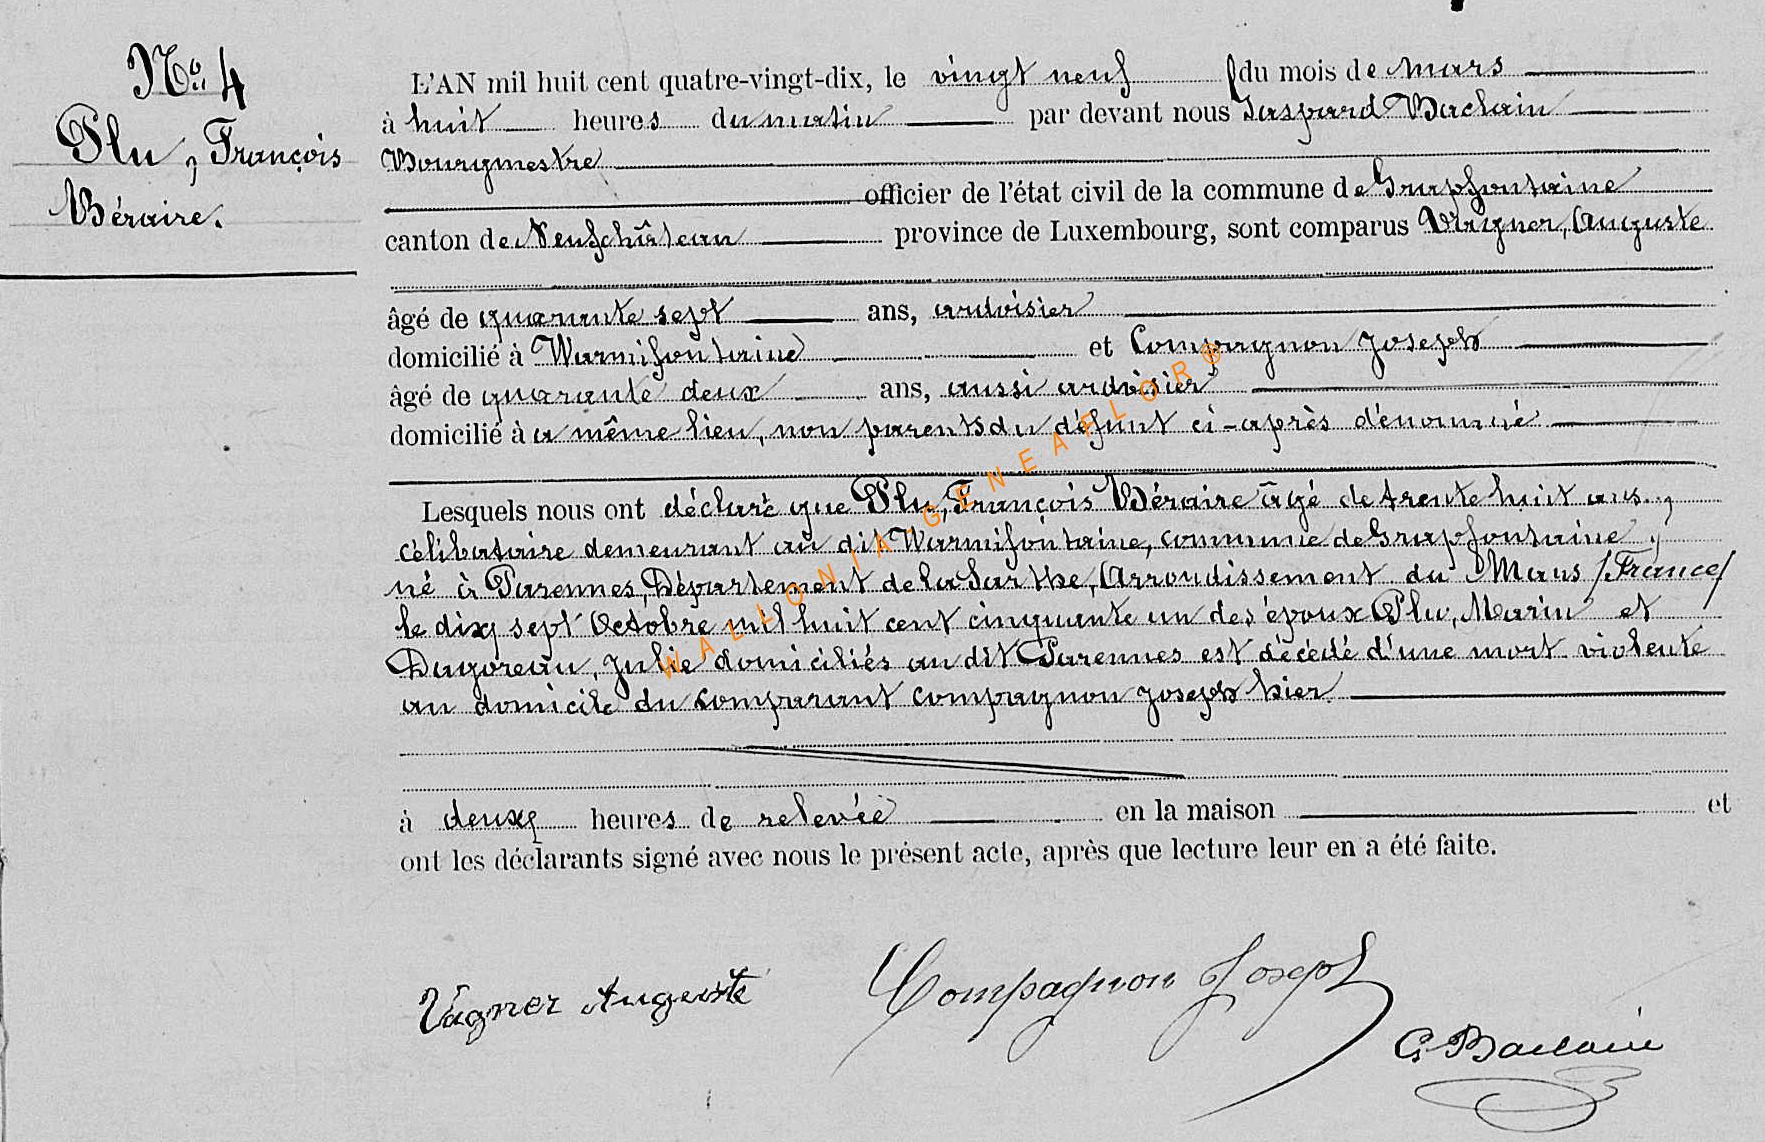 No. 4
Plu, François
Béraire.
L'AN mil huit cent quatre-vingt-dix, le vingt neuf du mois de mars
à huit heures du matin par devant nous Gaspard Baclain
Bourgmestre
officier de l'état civil de la commune de Grapfontaine
canton de Neufchâteau province de Luxembourg, sont comparus Vagner, Auguste
âgé de quarante sept ans, ardoisier
domicilié à Warmifontaine et Compagnon Joseph
âgé de quarante deux ans, aussi ardoisier
domicilié à u même lieu, non parents du défunt ci-après dénommé
Lesquels nous ont déclaré que Plu, François Béraire âgé de trente huit ans,
célibataire demeurant au dit Warmifontaine, commune de Grapfontaine,
né à Parennes, Département de la Sarthe, Arrondissement du Mans /France/
le dix sept Octobre mil huit cent cinquante un des époux Plu, Marin et
Dugoreau, Julie domiciliés au dit Parennes est décédé d'une mort violente
au domicile du comparant Compagnon Joseph hier
à deux heures de relevée en la maison et
ont les déclarants signé avec nous le présent acte, après que lecture leur en a été faite.
Vagner Auguste Compagnon Joseph
G. Baclain
WALLONIA-GENEAFLOR®